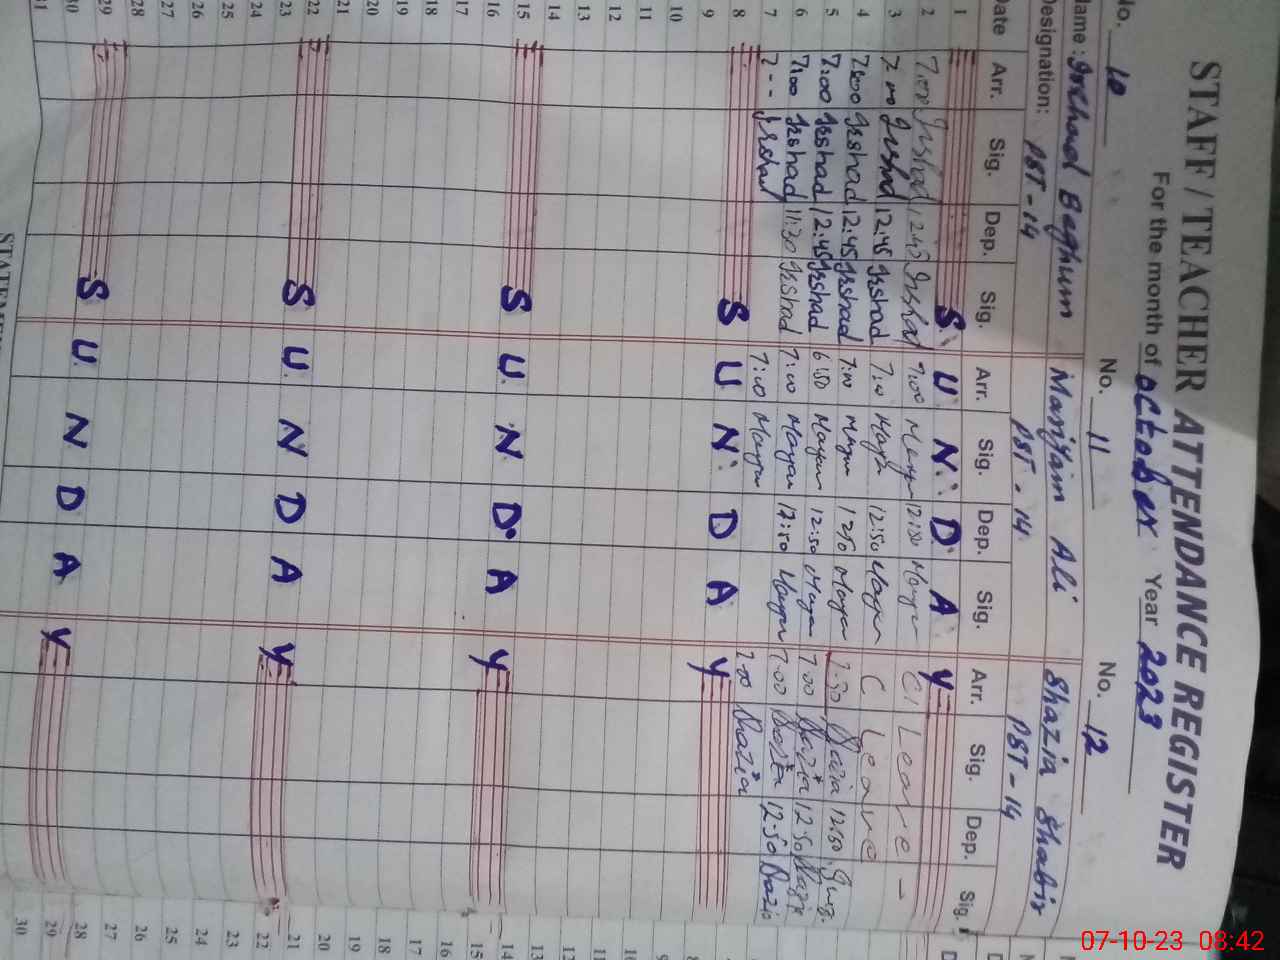 STAFF / TEACHER ATTENDANCE REGISTER
For the month of October Year 2023
No. 10 No. 11 No. 12
Name : Irshad Baghum Marjain Ali Shazia Shabir
Designation: PST-14 PST-14 PST-14
Date Arr. Sig. Dep. Sig. Arr. Sig. Dep. Sig. Arr. Sig. Dep. Sig.
1 S U N D A Y
2 7:00 Irshad 12:45 Irshad 7:00 12:50 Leave
3 7:00 Irshad 12:45 Irshad 7:00 12:50 C Leave
4 7:00 Irshad 12:45 Irshad 7:00 1250 7:30 Shazia 12:50
5 7:00 Irshad 12:45 Irshad 6:50 12:50 7:00 Shazia 12:50 Shazia
6 7:00 Irshad 11:30 Irshad 7:00 12:50 7:00 Shazia 12:50 Shazia
7 7-- Irshad 7:00 7:00 Shazia
8 S U N D A Y
9
10
11
12
13
14
15 S U N D A Y
16
17
18
19
20
21
22 S U N D A Y
23
24
25
26
27
28
29 S U N D A Y
30
31
8
9
10
11
12
13
14
15
16
17
18
19
20
21
22
23
24
25
26
27
28
29
30
07-10-23 08:42